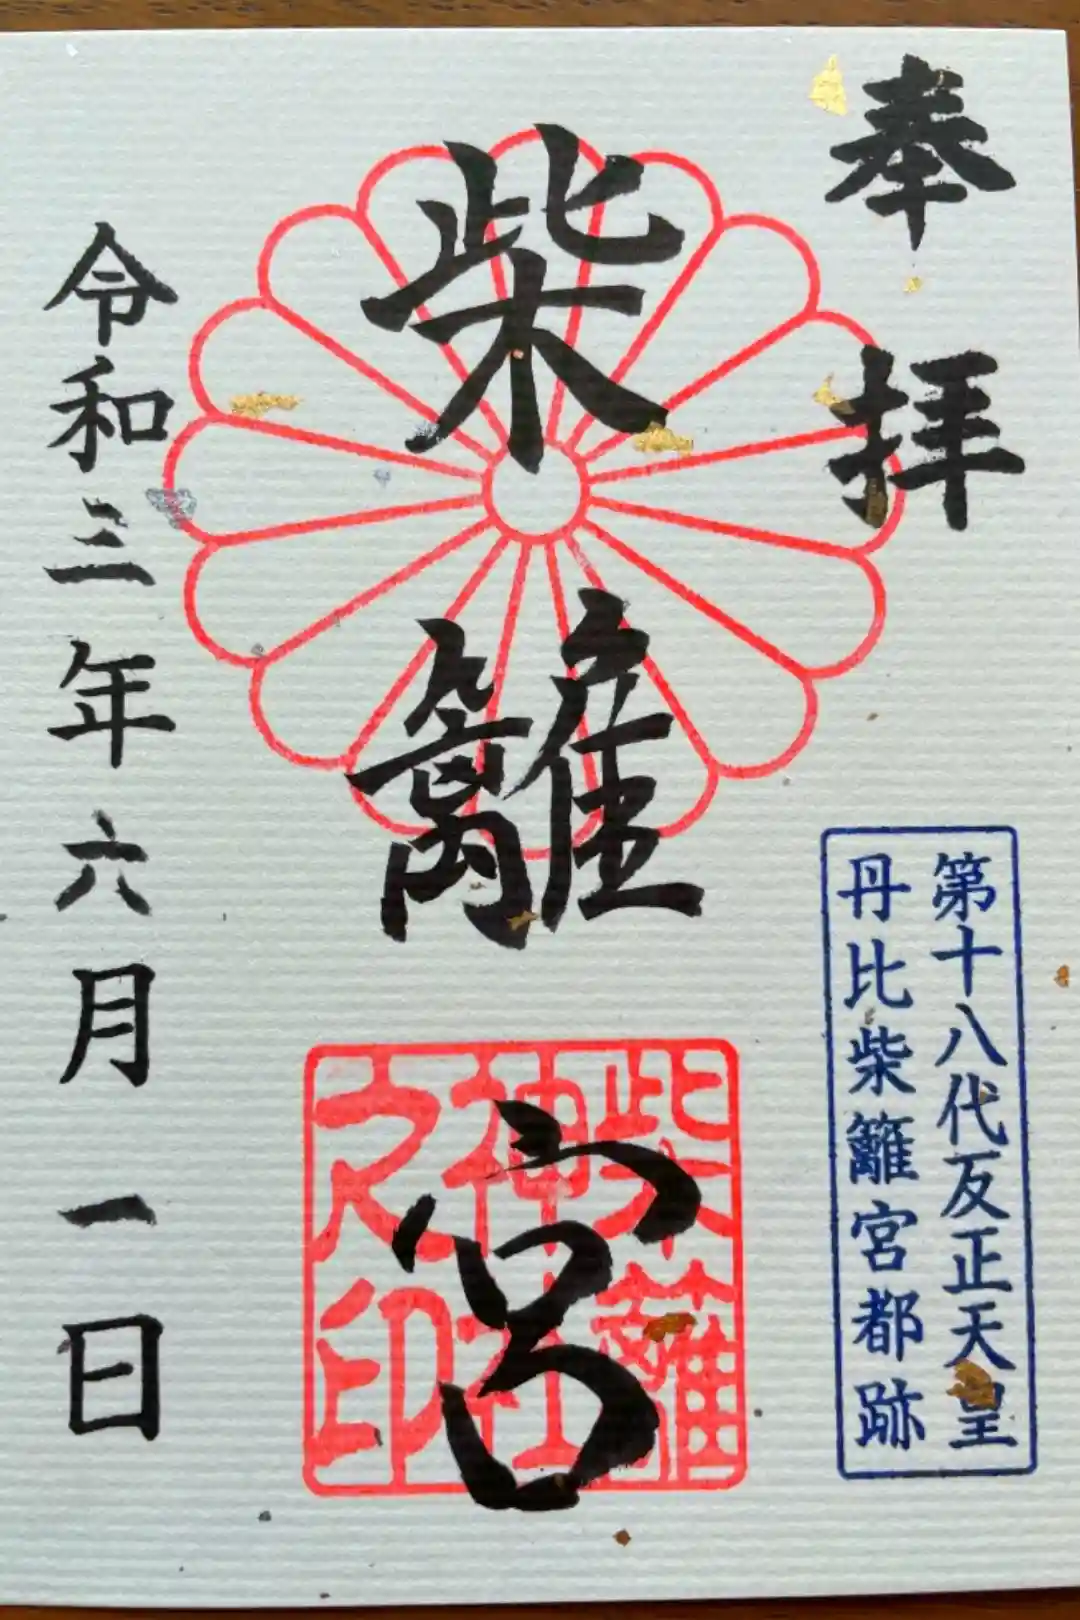 奉拝
第十八代反正天皇
丹比柴籬宮都跡
柴籬宮
柴籬神社之印
令和三年六月一日